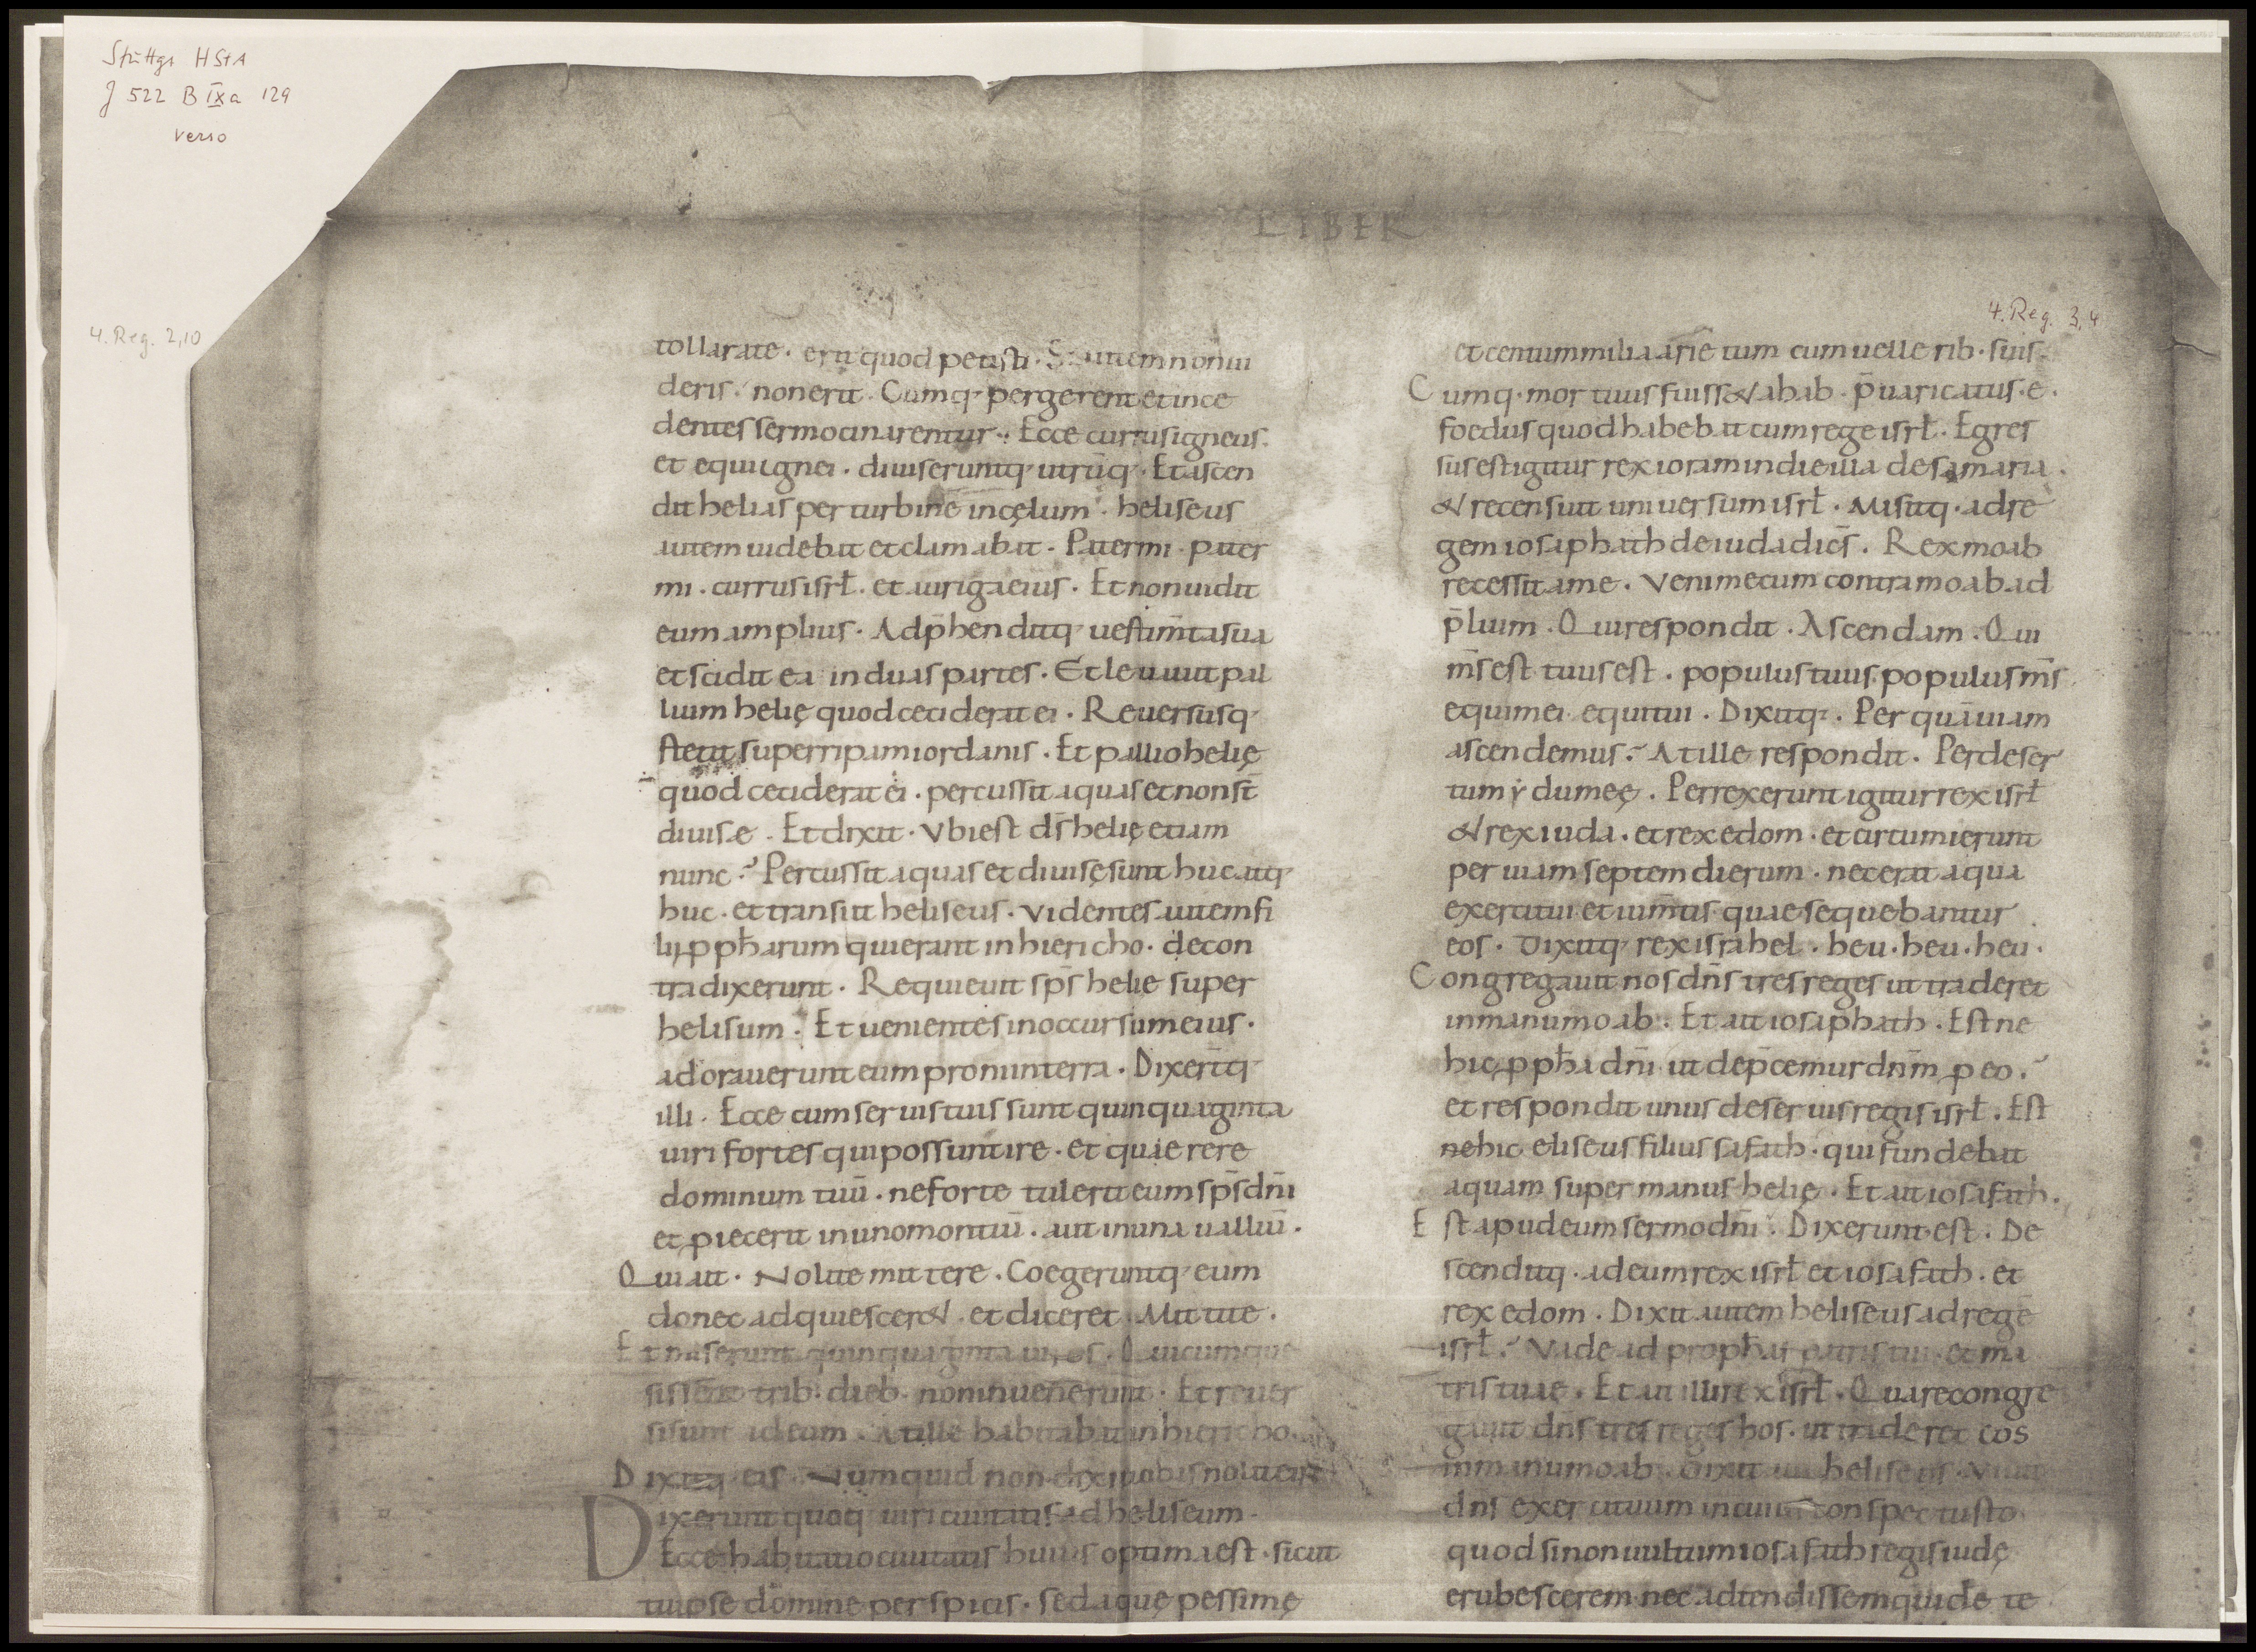 Stuttgt HStA
J 522 B IXa 129
verso
LIBER
4. Reg. 2,10
tollar a te · erit quod petisti · Si autem non ui
deris · non erit · Cumq· pergerent et ince
dentes sermocinarentur · Ecce currus igneus ·
et equi ignei · diuiserunt q· utrūq· Et ascen
dit helias per turbinē in cęlum · heliseus
autem uidebat et clamabat · Pater mi · pater
mi · currus isrł · et auriga eius · Et non uidit
eum amplius · Adp̄henditq· uestim̄ta sua
et scidit ea in duas partes · Et leuauit pal
lium helię quod ceciderat ei · Reuersusq·
stetit super ripam iordanis · Et pallio helię
quod ceciderat ei · percussit aquas et non st̄
diuise · Et dixit · Vbi est d̄s helię etiam
nunc ·? Percussit aquas et diuisę sunt huc atq·
huc · et transiit heliseus · Videntes autem fi
lii ꝓpharum qui erant in hiericho · de con
tra dixerunt · Requieuit sp̄s helie super
helisum · Et uenientes in occursum eius ·
adorauerunt eum proni in terra · Dixer̄tq·
illi · Ecce cum seruis tuis sunt quinquaginta
uiri fortes qui possunt ire · et quaerere
dominum tuū · ne forte tulerit eum sp̄s dn̄i
et ꝓiecerit in uno montiū · aut in una ualliū ·
Qui ait · Nolite mittere · Coegeruntq· eum
donec adquiescer& · et diceret · Mittite ·
Et miserunt quinquaginta uiros · Qui cumque
sissēnt trib· dieb· non inuenerunt · Et reuer
si sunt ad eum · At ille habitabat in hiericho ·
Dixitq· eis · Numquid non dixi uobis nolite ire
Dixerunt quoq· uiri ciuitatis ad heliseum ·
Ecce habitatio ciuitatis huius optima est · sicut
tu ipse domine perspicis · sed aquę pessimę
4. Reg. 3,4
et centum milia arietum cum uellerib· suis ·
Cumq· mortuus fuiss& ahab · p̄uaricatus · e ·
foedus quod habebat cum rege isrł · Egres
sus est igitur rex ioram in die illa de samaria ·
& recensuit uniuersum isrł · Misitq· ad re
gem iosaphath de iuda dicēs · Rex moab
recessit a me · Veni mecum contra moab ad
p̄lium · Qui respondit · Ascendam · Qui
m̄s est tuus est · populus tuus · populus m̄s
equi mei equi tui · Dixitq· · Per quā uiam
ascendemus ·? At ille respondit · Per deser
tum ẏdumeę · Perrexerunt igitur rex isrł
& rex iuda · et rex edom · et circumierunt
per uiam septem dierum · nec erat aqua
exercitui et ium̄tis quae sequebantur
eos · Dixitq· rex israhel · heu · heu · heu ·
Congregauit nos dn̄s tres reges ut traderet
in manu moab · Et ait iosaphath · Est ne
hic ꝓpha dn̄i ut dep̄cemur dn̄m ꝓ eo ·?
et respondit unus de seruis regis isrł · Est
ne hic eliseus filius safath · qui fundebat
aquam super manus helię · Et ait iosafath ·
Est apud eum sermo dn̄i · Dixerunt · est · De
scenditq· ad eum rex isrł et iosafath · et
rex edom · Dixit autem heliseus ad regē
isrł ·? Vade ad prophas patris tui · et ma
tris tuae · Et ait illi rex isrł · Quare congre
gauit dn̄s tres reges hos · ut traderet eos
in manu moab · Dixit au heliseus · Viuit
dn̄s exercituum in cuius conspectu sto
quod si non uultum iosafath regis iudę
erubescerem · nec adtendissem quidē te